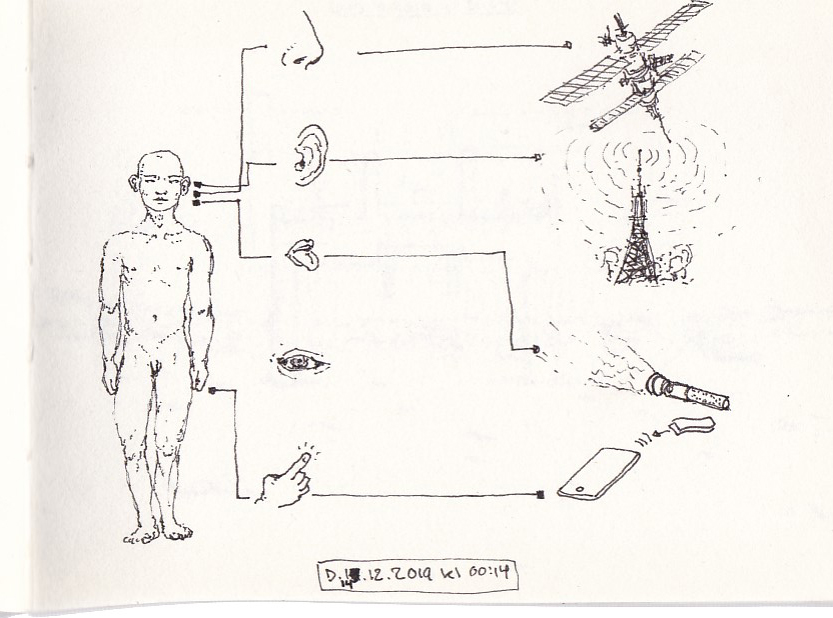 D.14.12.2019 kl 00:14